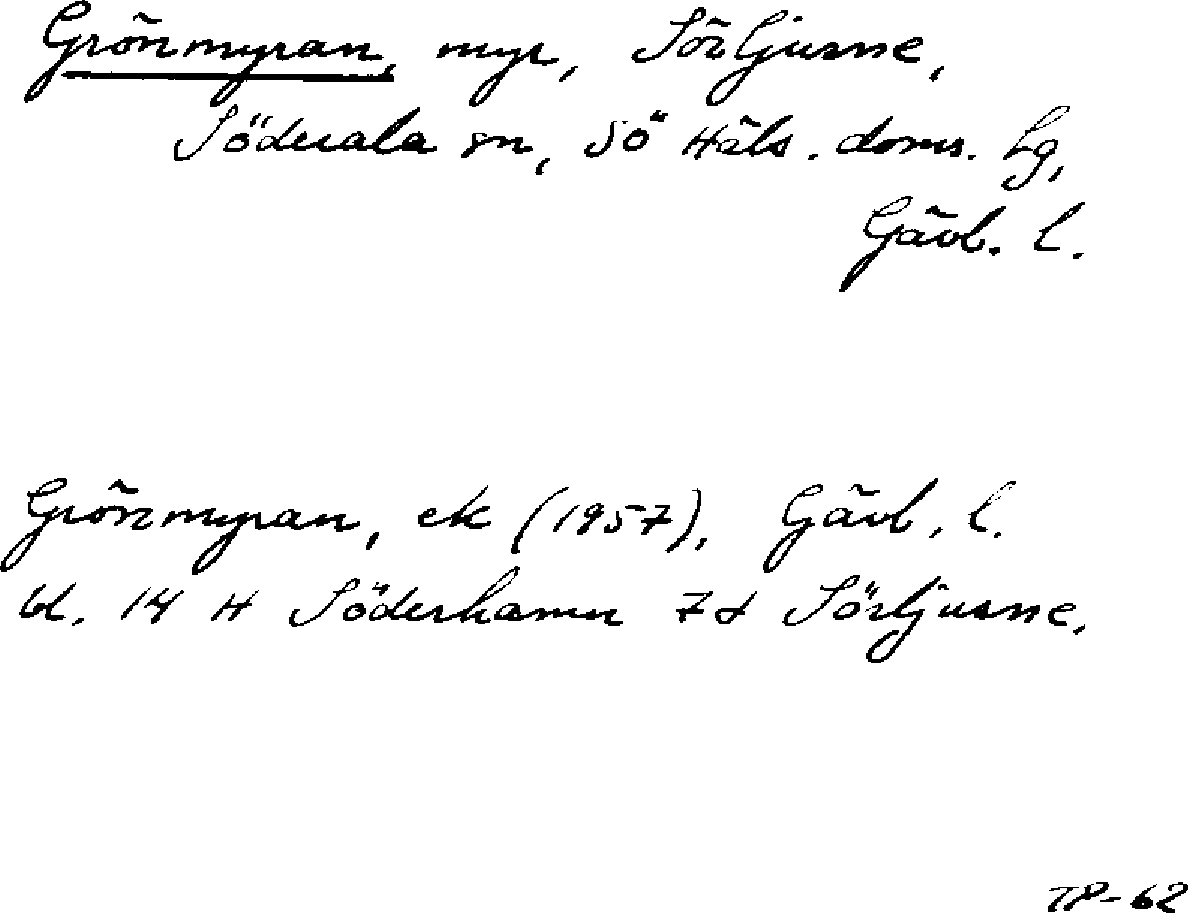 Grönmyran, myr, Sörljusne,
Söderala sn, Sö Häls. doms. hg,
Gävl. l.
Grönmyran, ek (1957), Gävl. l.
bl. 14 H Söderhamn 7d Sörljusne.
TP-62